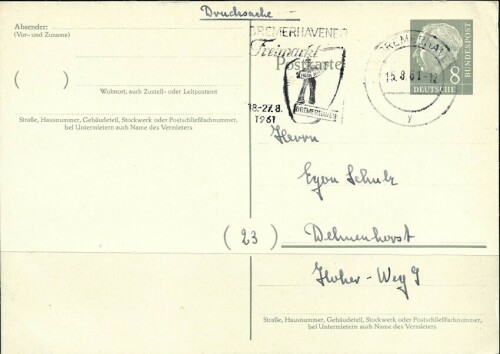 Drucksache
Absender:
(Vor- und Zuname)
( )
Wohnort, auch Zustell- oder Leitpostamt
Straße, Hausnummer, Gebäudeteil, Stockwerk oder Postschließfachnummer,
bei Untermietern auch Name des Vermieters
BREMERHAVENER
Freimarkt
Postkarte
18.-27.8.
1961
BREMERHAVEN
BREMERHAV
15.8.61-12
y
8
DEUTSCHE
BUNDESPOST
Herrn
Egon Schulz
(23) Delmenhorst
Hoher-Weg 9
Straße, Hausnummer, Gebäudeteil, Stockwerk oder Postschließfachnummer,
bei Untermietern auch Name des Vermieters